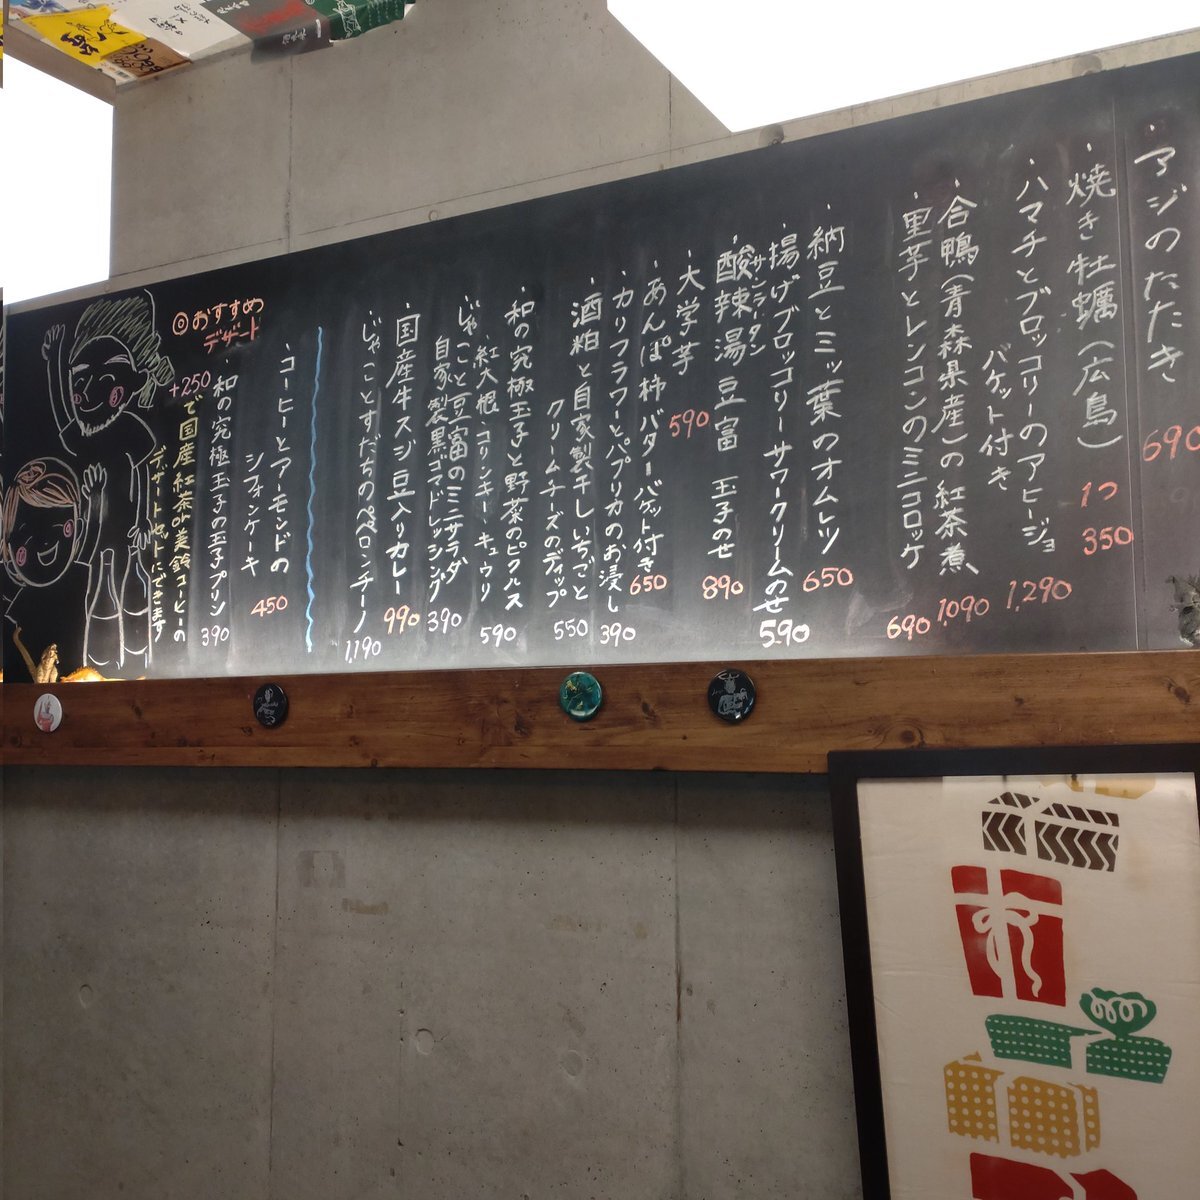 ・アジのたたき
690
・焼き牡蠣(広島)
1つ
350
・ハマチとブロッコリーのアヒージョ
バゲット付き
1,290
・合鴨(青森県産)の紅茶煮
1,090
・里芋とレンコンのミニコロッケ
690
・納豆とミツ葉のオムレツ
650
・揚げブロッコリーサワークリームのせ
590
サンラータン
・酸辣湯豆富 玉子のせ
890
・大学芋
590
・あんぽ柿バターバゲット付き
650
・カリフラワーとパプリカのお浸し
390
・酒粕と自家製干しいちごと
クリームチーズのディップ
550
・和の究極玉子と野菜のピクルス
・紅大根・コリンキー・キュウリ
590
・じゃこと豆富のミニサラダ
自家製黒ゴマドレッシング
390
・国産牛スジ豆入りカレー
990
・じゃことすだちのペペロンチーノ
1,190
◎おすすめ
デザート
・コーヒーとアーモンドの
シフォンケーキ
450
・和の究極玉子の玉子プリン
390
+250で国産紅茶or美鈴コーヒーの
デザートセットにできます